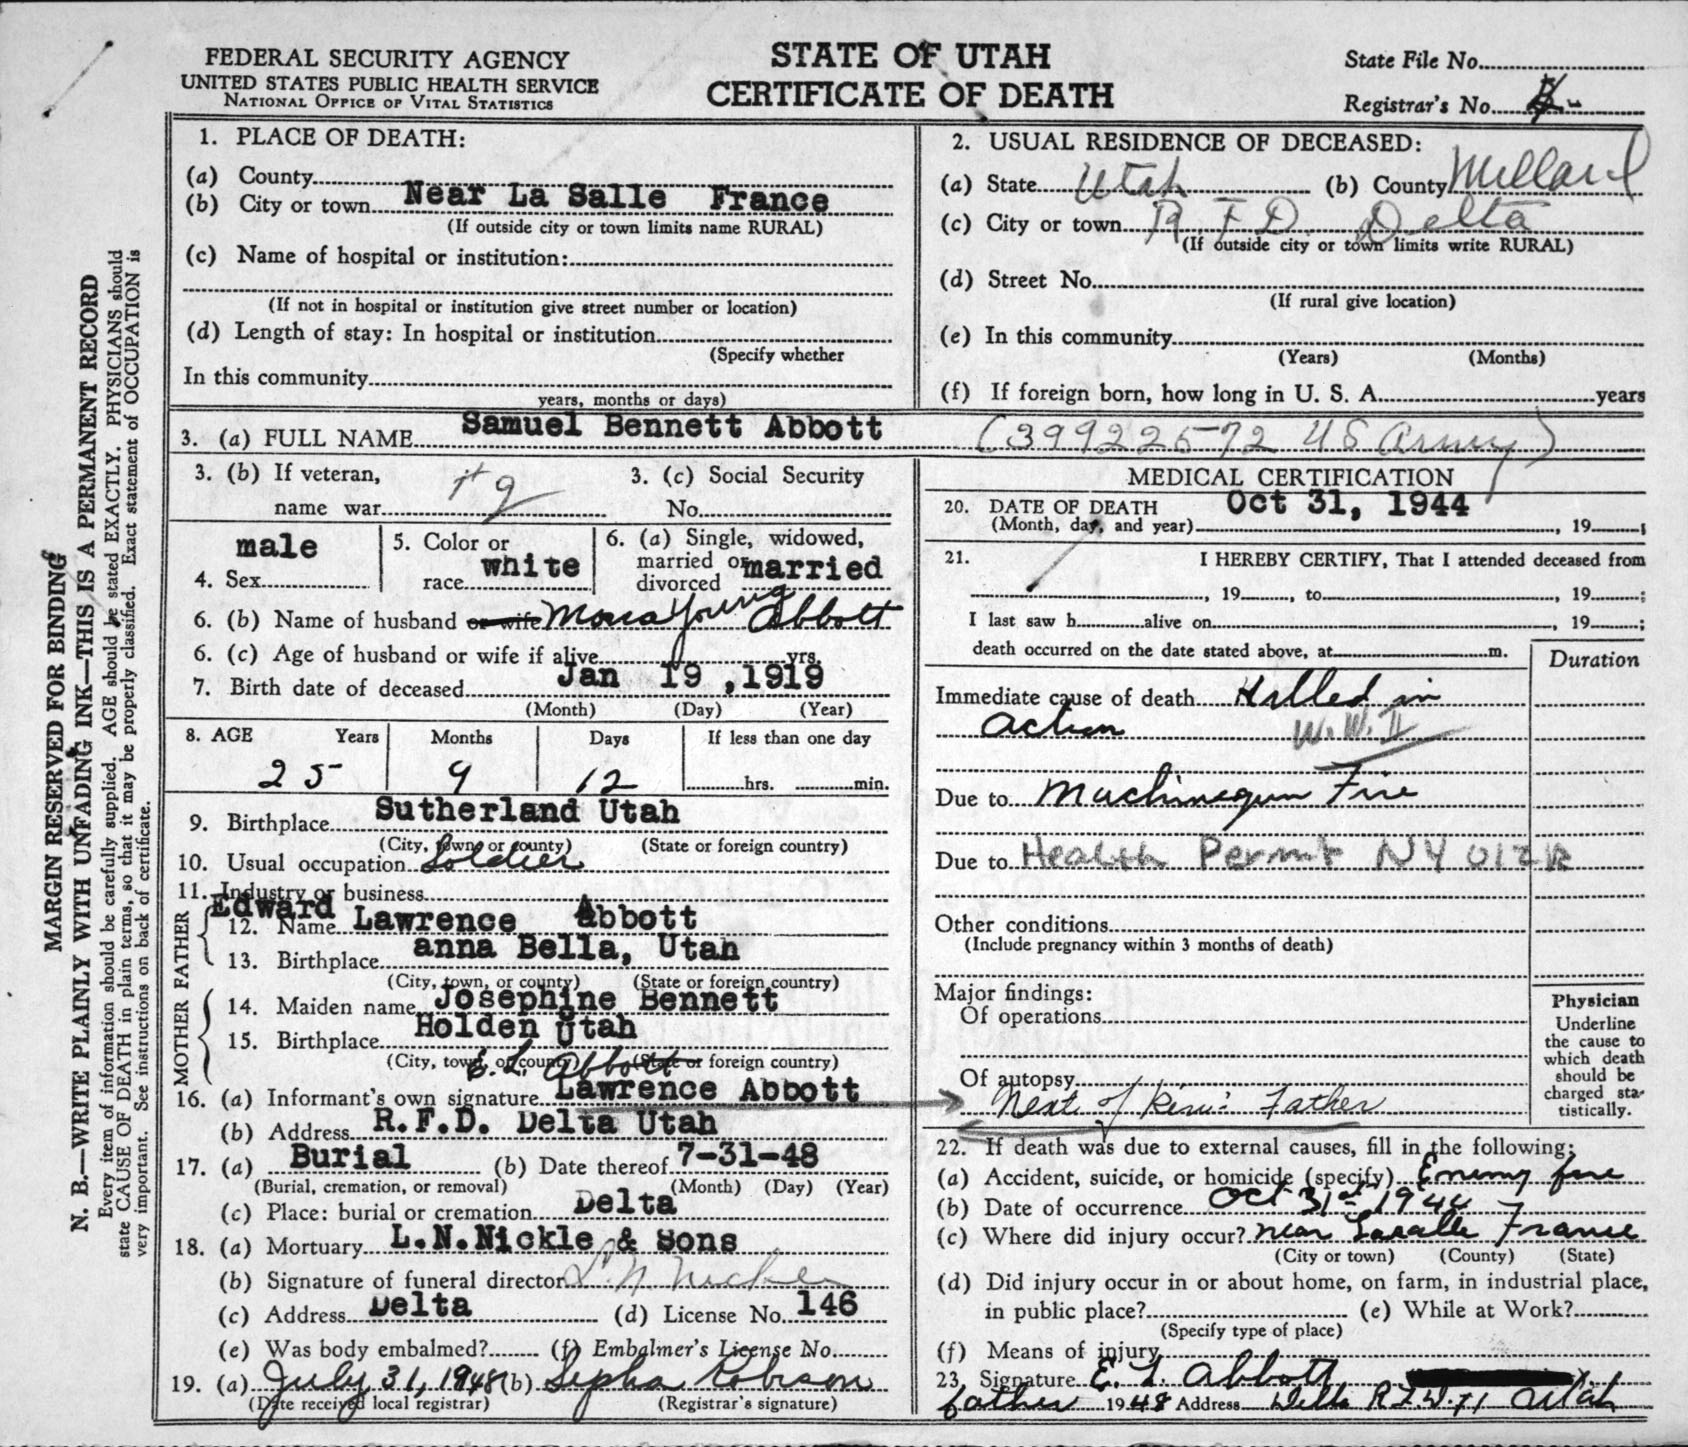 FEDERAL SECURITY AGENCY
UNITED STATES PUBLIC HEALTH SERVICE
NATIONAL OFFICE OF VITAL STATISTICS
STATE OF UTAH
CERTIFICATE OF DEATH
State File No.
Registrar's No.
MARGIN RESERVED FOR BINDING
N. B.—WRITE PLAINLY WITH UNFADING INK—THIS IS A PERMANENT RECORD
Every item of information should be carefully supplied. AGE should be stated EXACTLY. PHYSICIANS should
state CAUSE OF DEATH in plain terms, so that it may be properly classified. Exact statement of OCCUPATION is
very important. See instructions on back of certificate.
1. PLACE OF DEATH:
(a) County
(b) City or town Near La Salle France
(If outside city or town limits name RURAL)
(c) Name of hospital or institution:
(If not in hospital or institution give street number or location)
(d) Length of stay: In hospital or institution
(Specify whether
In this community
years, months or days)
2. USUAL RESIDENCE OF DECEASED:
(a) State Utah (b) County Millard
(c) City or town R. F. D. Delta
(If outside city or town limits write RURAL)
(d) Street No.
(If rural give location)
(e) In this community
(Years) (Months)
(f) If foreign born, how long in U. S. A. years
3. (a) FULL NAME Samuel Bennett Abbott (39922572 US Army)
3. (b) If veteran, 3. (c) Social Security
name war No.
4. Sex male 5. Color or race white 6. (a) Single, widowed, married or divorced married
6. (b) Name of husband or wife Mona Young Abbott
6. (c) Age of husband or wife if alive yrs.
7. Birth date of deceased Jan 19, 1919
(Month) (Day) (Year)
8. AGE Years Months Days If less than one day
25 9 12 hrs. min.
9. Birthplace Sutherland Utah
(City, town, or county) (State or foreign country)
10. Usual occupation Soldier
11. Industry or business
FATHER
12. Name Edward Lawrence Abbott
13. Birthplace anna Bella, Utah
(City, town, or county) (State or foreign country)
MOTHER
14. Maiden name Josephine Bennett
15. Birthplace Holden Utah
(City, town, or county) (State or foreign country)
E. L. Abbott
16. (a) Informant's own signature Lawrence Abbott
(b) Address R.F.D. Delta Utah
17. (a) Burial (b) Date thereof 7-31-48
(Burial, cremation, or removal) (Month) (Day) (Year)
(c) Place: burial or cremation Delta
18. (a) Mortuary L.N.Nickle & Sons
(b) Signature of funeral director L. N. Nickle
(c) Address Delta (d) License No. 146
(e) Was body embalmed? (f) Embalmer's License No.
19. (a) July 31, 1948 (b) Sepha Robison
(Date received local registrar) (Registrar's signature)
MEDICAL CERTIFICATION
20. DATE OF DEATH Oct 31, 1944
(Month, day, and year) , 19 ;
21. I HEREBY CERTIFY, That I attended deceased from
, 19 , to , 19 ;
I last saw h alive on , 19 ;
death occurred on the date stated above, at m.
Duration
Immediate cause of death Killed in
action W. W. II
Due to Machinegun Fire
Due to Health Permit NY 012R
Other conditions
(Include pregnancy within 3 months of death)
Major findings:
Of operations
Of autopsy
Next of Kin: Father
Physician
Underline
the cause to
which death
should be
charged sta-
tistically.
22. If death was due to external causes, fill in the following:
(a) Accident, suicide, or homicide (specify) Enemy fire
(b) Date of occurrence Oct 31st 1944
(c) Where did injury occur? near Lasalle France
(City or town) (County) (State)
(d) Did injury occur in or about home, on farm, in industrial place,
in public place? (e) While at Work?
(Specify type of place)
(f) Means of injury
23. Signature E. L. Abbott
father 1948 Address Delta R.F.D. #1 Utah